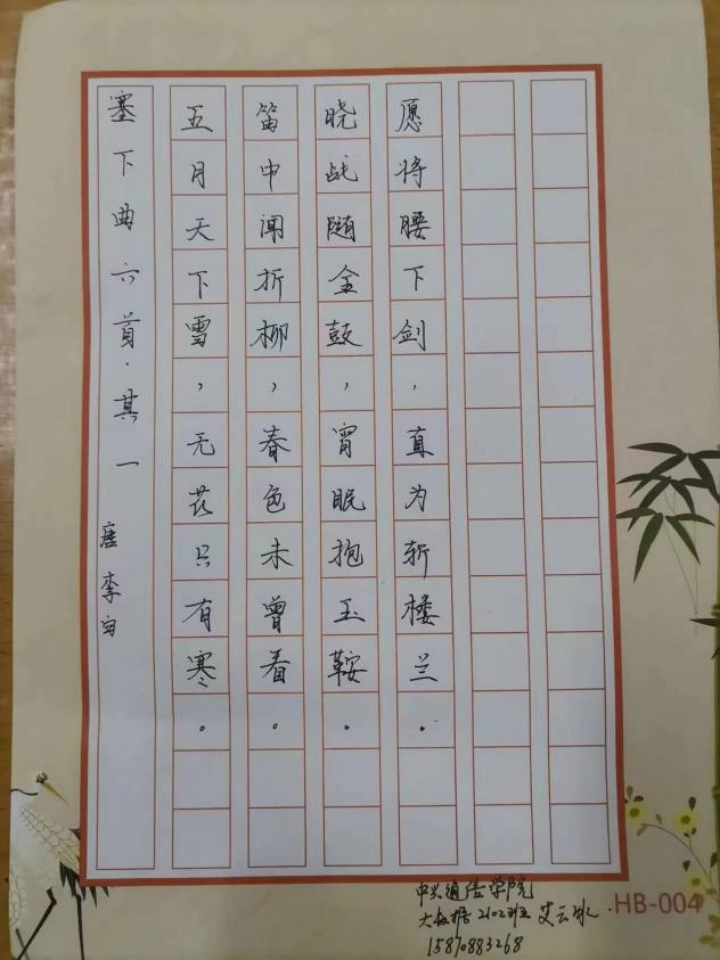 塞下曲六首·其一
唐 李白
五月天下雪，无花只有寒。
笛中闻折柳，春色未曾看。
晓战随金鼓，宵眠抱玉鞍。
愿将腰下剑，直为斩楼兰。
中兴通信学院
大数据2102班 艾云冰
15870883268
HB-004